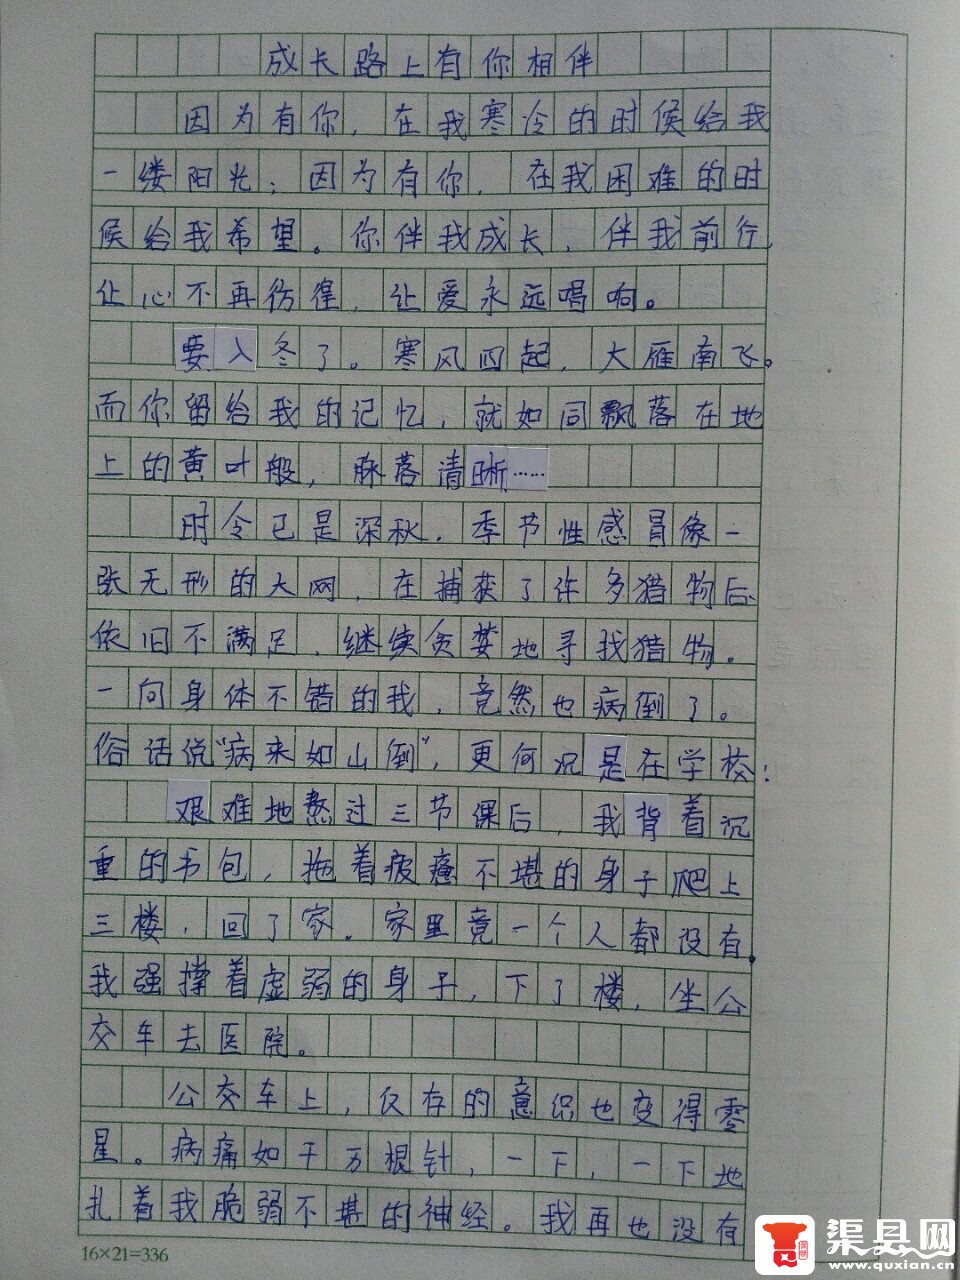 成长路上有你相伴
因为有你，在我寒冷的时候给我
一缕阳光；因为有你，在我困难的时
候给我希望。你伴我成长，伴我前行，
让心不再彷徨，让爱永远唱响。
要入冬了。寒风四起，大雁南飞。
而你留给我的记忆，就如同飘落在地
上的黄叶般，脉落清晰……
时令已是深秋，季节性感冒像一
张无形的大网，在捕获了许多猎物后
依旧不满足，继续贪婪地寻找猎物。
一向身体不错的我，竟然也病倒了。
俗话说“病来如山倒”，更何况是在学校：
艰难地熬过三节课后，我背着沉
重的书包，拖着疲惫不堪的身子爬上
三楼，回了家。家里竟一个人都没有。
我强撑着虚弱的身子，下了楼，坐公
交车去医院。
公交车上，仅存的意识也变得零
星。病痛如千万根针，一下，一下地
扎着我脆弱不堪的神经。我再也没有
16×21=336
渠县网
www.quxian.cn